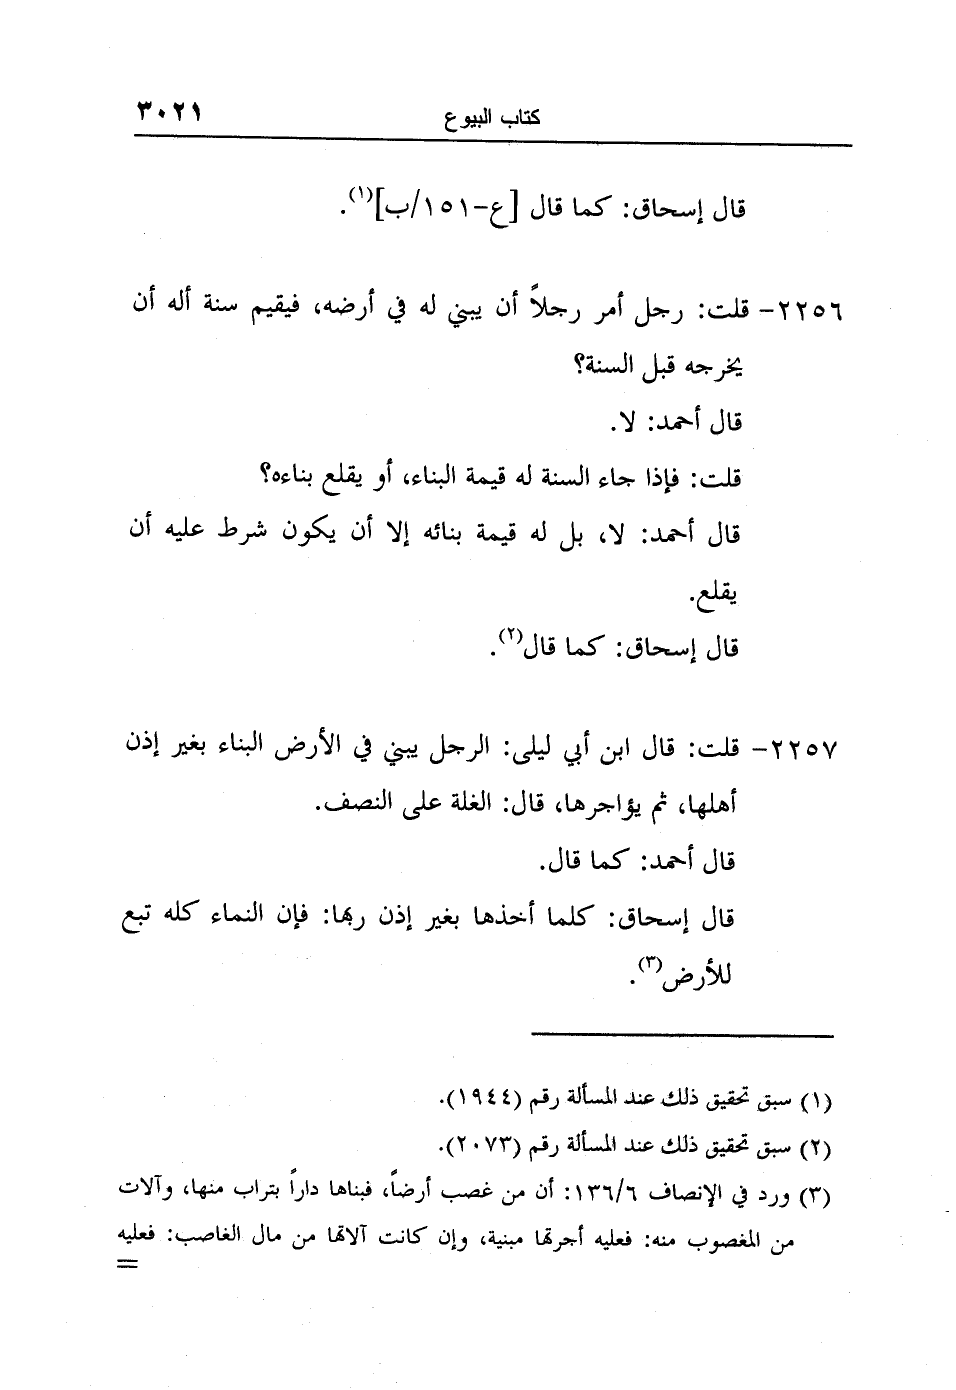 كتاب البيوع ٣٠٢١
قال إسحاق: كما قال [ع-١٥١/ب](١).
٢٢٥٦- قلت: رجل أمر رجلاً أن يبني له في أرضه، فيقيم سنة أله أن
يخرجه قبل السنة؟
قال أحمد: لا.
قلت: فإذا جاء السنة له قيمة البناء، أو يقلع بناءه؟
قال أحمد: لا، بل له قيمة بنائه إلا أن يكون شرط عليه أن
يقلع.
قال إسحاق: كما قال(٢).
٢٢٥٧- قلت: قال ابن أبي ليلى: الرجل يبني في الأرض البناء بغير إذن
أهلها، ثم يؤاجرها، قال: الغلة على النصف.
قال أحمد: كما قال.
قال إسحاق: كلما أخذها بغير إذن ربها: فإن النماء كله تبع
للأرض(٣).
(١) سبق تحقيق ذلك عند المسألة رقم (١٩٤٤).
(٢) سبق تحقيق ذلك عند المسألة رقم (٢٠٧٣).
(٣) ورد في الإنصاف ١٣٦/٦: أن من غصب أرضاً، فبناها داراً بتراب منها، وآلات
من المغصوب منه: فعليه أجرتها مبنية، وإن كانت آلاتها من مال الغاصب: فعليه
=